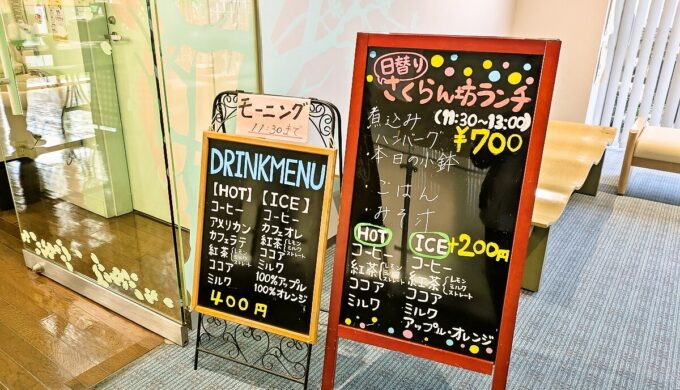 モーニング
11:30まで
DRINKMENU
[HOT]
コーヒー
アメリカン
カフェラテ
紅茶 レモン ミルク ストレート
ココア
ミルク
[ICE]
コーヒー
カフェオレ
紅茶 レモン ミルク ストレート
ココア
ミルク
100%アップル
100%オレンジ
400円
日替り
さくらん坊ランチ
(11:30~13:00)
¥700
煮込み
ハンバーグ
・本日の小鉢
・ごはん
・みそ汁
HOT
コーヒー
紅茶 レモン ミルク ストレート
ココア
ミルク
ICE
+200円
コーヒー
紅茶 レモン ミルク ストレート
ココア
ミルク
アップル・オレンジ